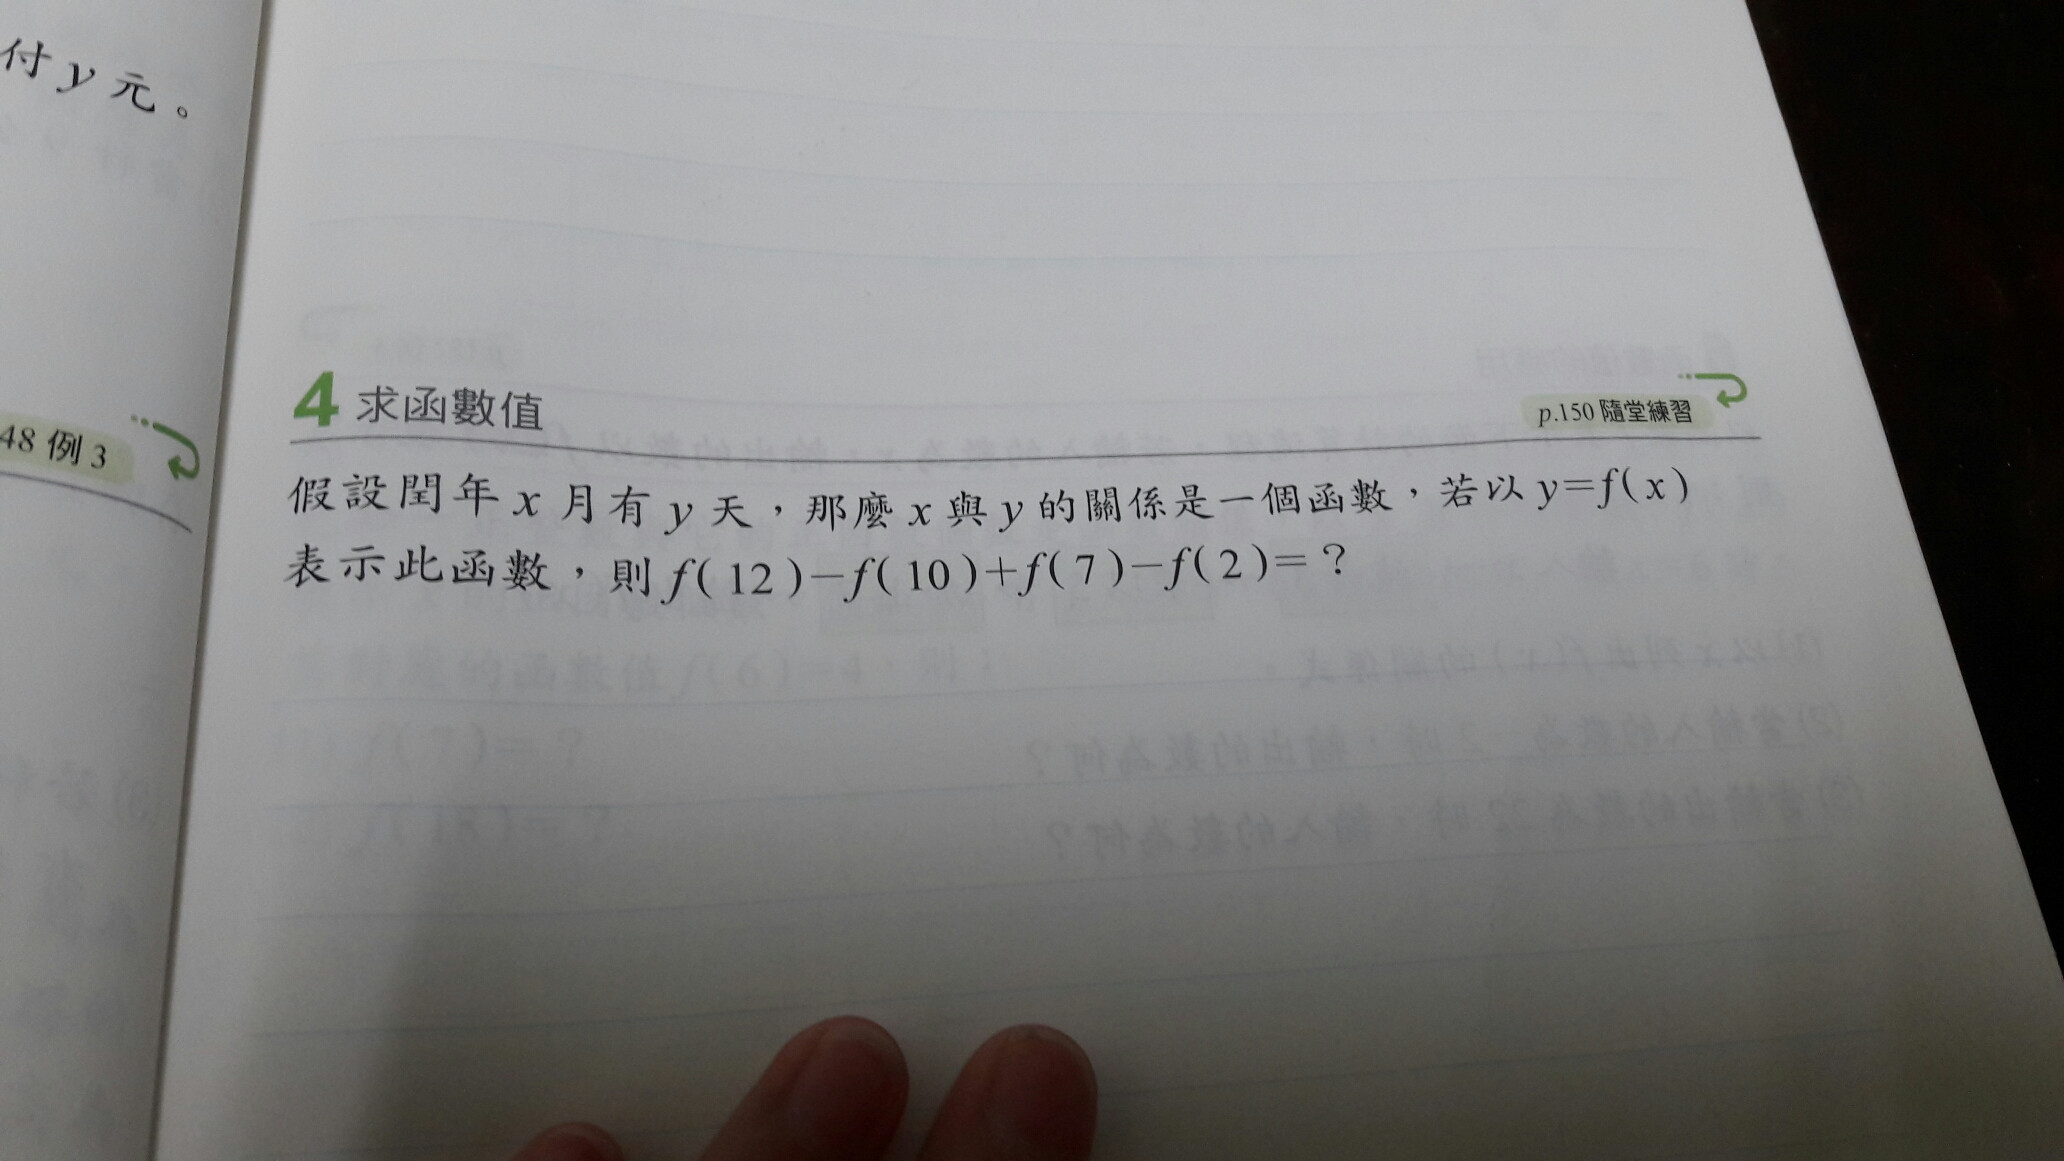 付 y 元。
48 例 3
4 求函數值
p.150 隨堂練習
假設閏年 x 月有 y 天，那麼 x 與 y 的關係是一個函數，若以 y=f(x)
表示此函數，則 f(12)−f(10)+f(7)−f(2)=？